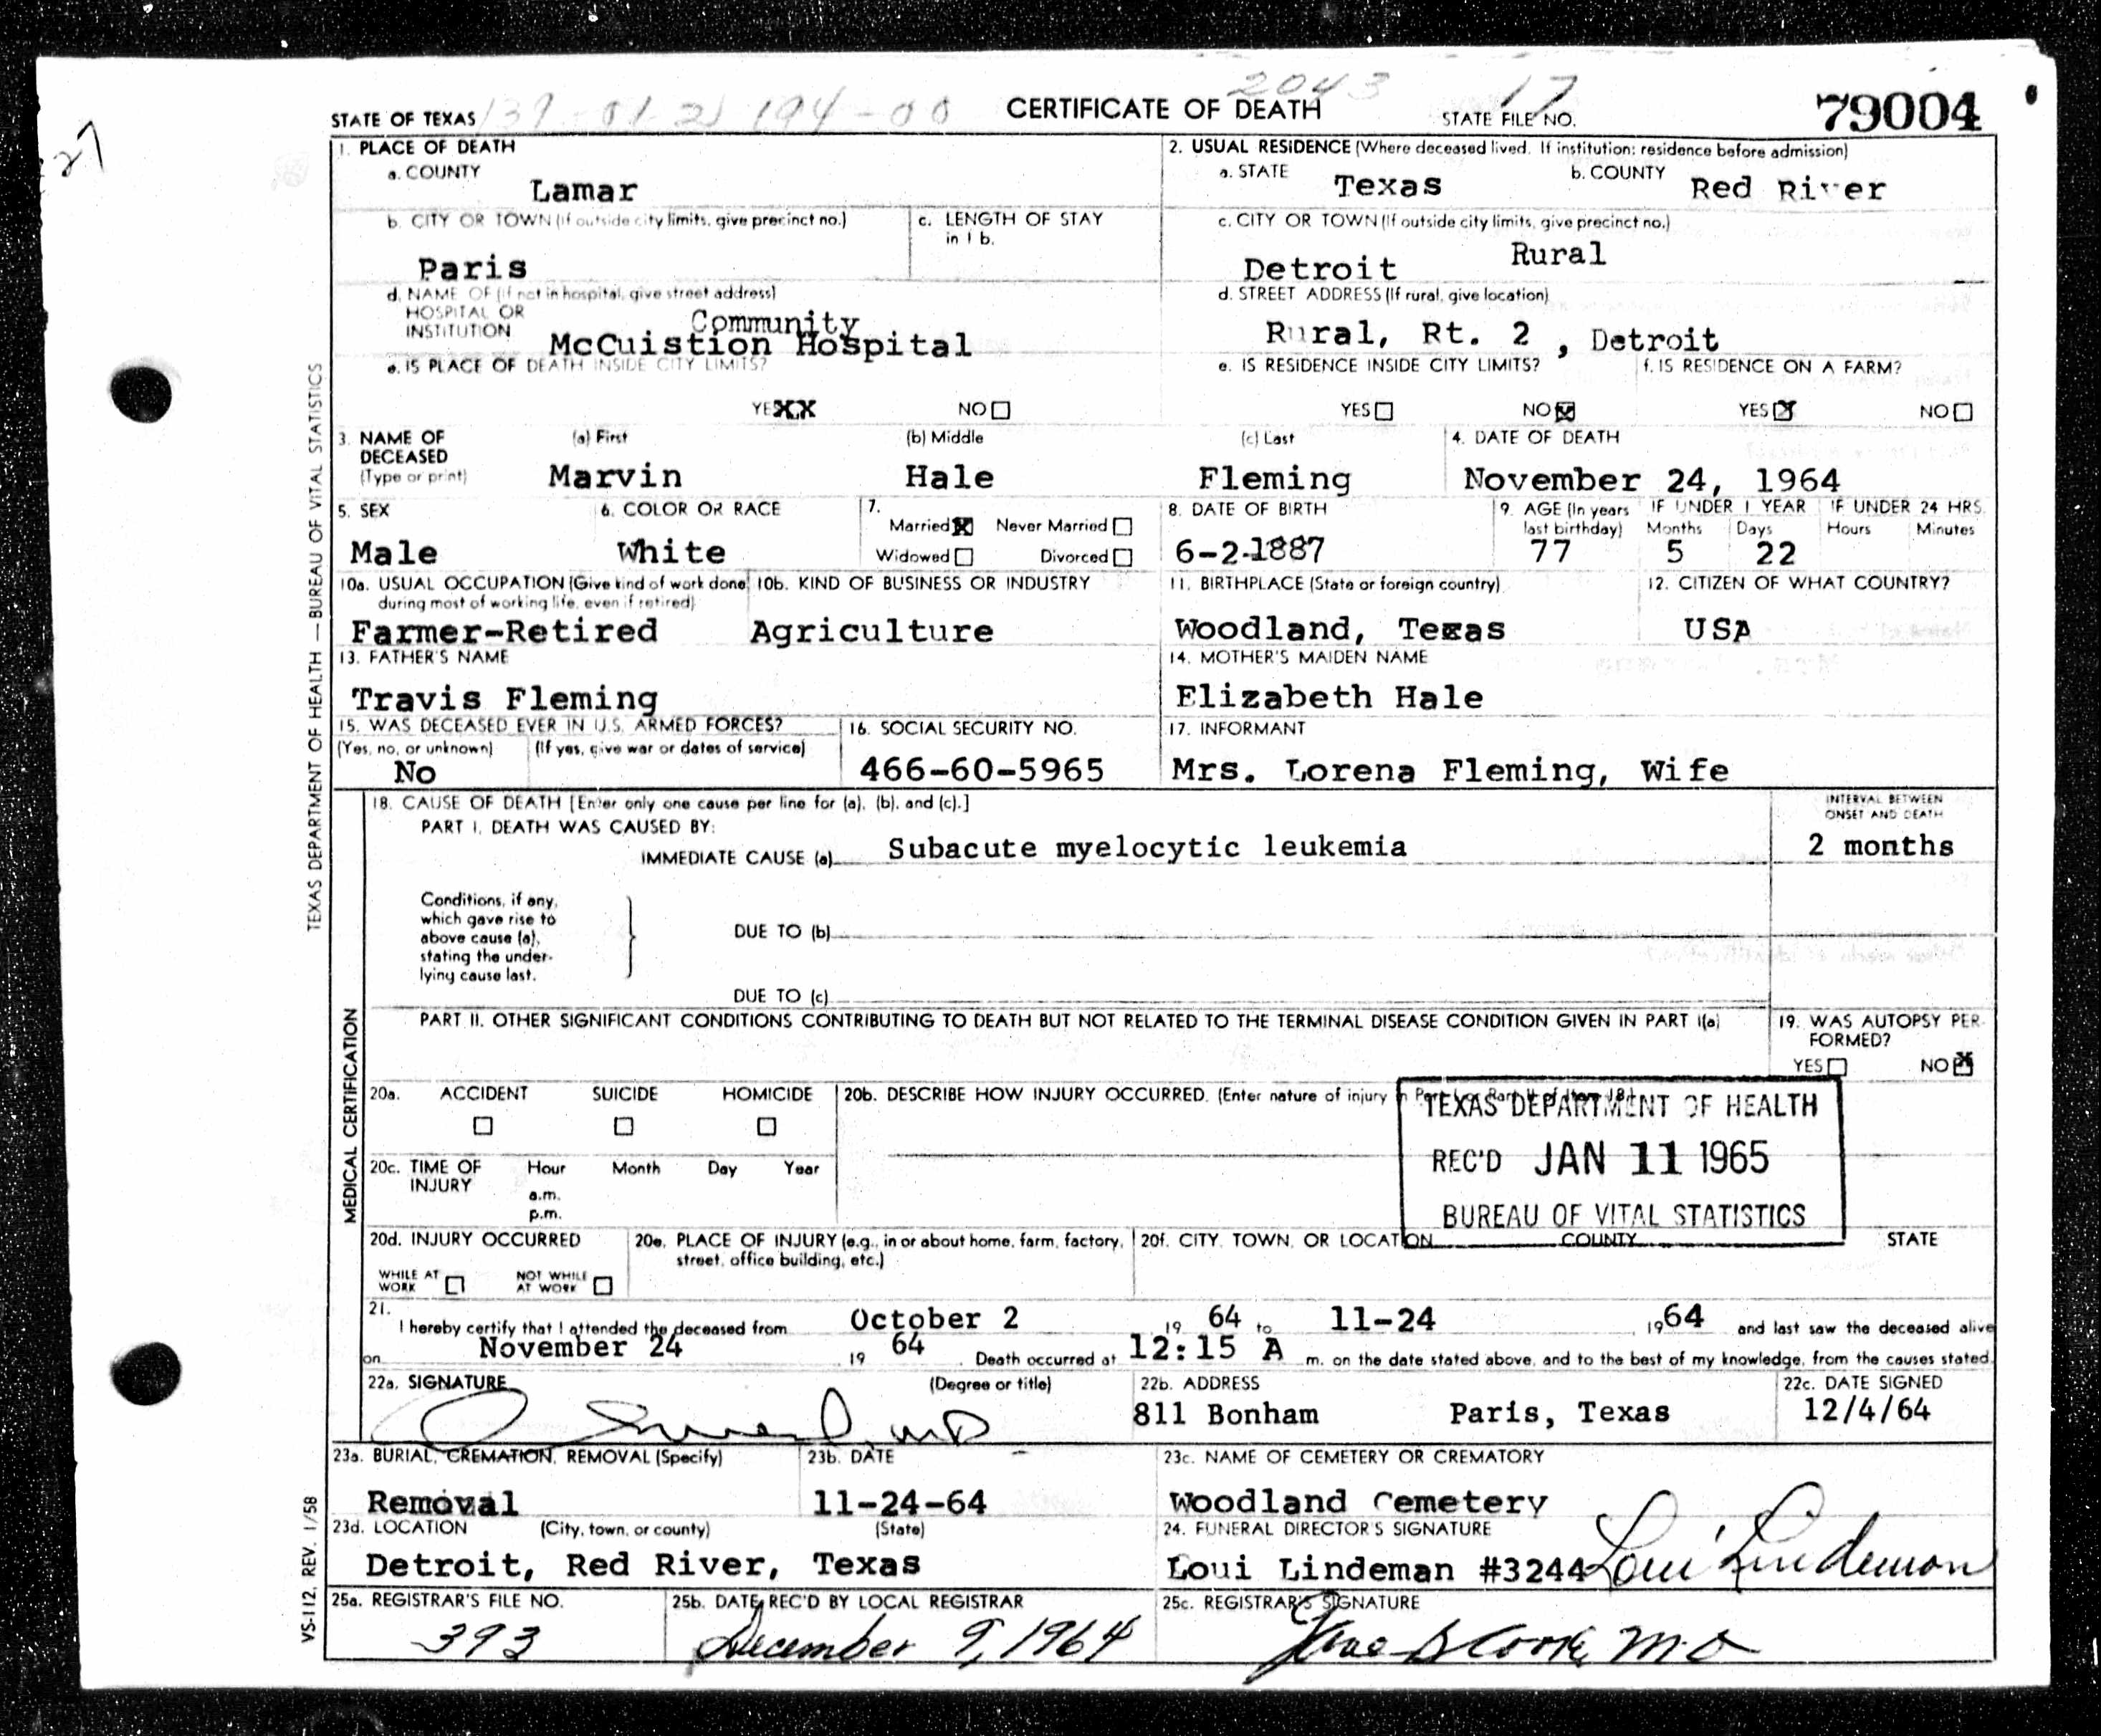 27
STATE OF TEXAS
CERTIFICATE OF DEATH
2043
17
STATE FILE NO.
79004
1. PLACE OF DEATH
a. COUNTY
Lamar
b. CITY OR TOWN (If outside city limits, give precinct no.)
Paris
c. LENGTH OF STAY
in 1 b.
d. NAME OF (If not in hospital, give street address)
HOSPITAL OR
INSTITUTION
Community
McCuistion Hospital
e. IS PLACE OF DEATH INSIDE CITY LIMITS?
YES XX NO
2. USUAL RESIDENCE (Where deceased lived. If institution: residence before admission)
a. STATE
Texas
b. COUNTY
Red River
c. CITY OR TOWN (If outside city limits, give precinct no.)
Detroit Rural
d. STREET ADDRESS (If rural, give location)
Rural, Rt. 2 , Detroit
e. IS RESIDENCE INSIDE CITY LIMITS?
YES NO X
f. IS RESIDENCE ON A FARM?
YES X NO
3. NAME OF
DECEASED
(Type or print)
(a) First
Marvin
(b) Middle
Hale
(c) Last
Fleming
4. DATE OF DEATH
November 24, 1964
5. SEX
Male
6. COLOR OR RACE
White
7.
Married X Never Married
Widowed Divorced
8. DATE OF BIRTH
6-2-1887
9. AGE (In years
last birthday)
77
IF UNDER 1 YEAR
Months Days
5 22
IF UNDER 24 HRS.
Hours Minutes
10a. USUAL OCCUPATION (Give kind of work done
during most of working life, even if retired)
Farmer-Retired
10b. KIND OF BUSINESS OR INDUSTRY
Agriculture
11. BIRTHPLACE (State or foreign country)
Woodland, Texas
12. CITIZEN OF WHAT COUNTRY?
USA
13. FATHER'S NAME
Travis Fleming
14. MOTHER'S MAIDEN NAME
Elizabeth Hale
15. WAS DECEASED EVER IN U.S. ARMED FORCES?
(Yes, no, or unknown) (If yes, give war or dates of service)
No
16. SOCIAL SECURITY NO.
466-60-5965
17. INFORMANT
Mrs. Lorena Fleming, Wife
18. CAUSE OF DEATH [Enter only one cause per line for (a), (b), and (c).]
PART I. DEATH WAS CAUSED BY:
IMMEDIATE CAUSE (a) Subacute myelocytic leukemia
INTERVAL BETWEEN
ONSET AND DEATH
2 months
Conditions, if any,
which gave rise to
above cause (a),
stating the under-
lying cause last.
DUE TO (b)
DUE TO (c)
PART II. OTHER SIGNIFICANT CONDITIONS CONTRIBUTING TO DEATH BUT NOT RELATED TO THE TERMINAL DISEASE CONDITION GIVEN IN PART I(a)
19. WAS AUTOPSY PER-
FORMED?
YES NO X
20a. ACCIDENT SUICIDE HOMICIDE
20b. DESCRIBE HOW INJURY OCCURRED. (Enter nature of injury in Part I or Part II of Item 18.)
TEXAS DEPARTMENT OF HEALTH
REC'D JAN 11 1965
BUREAU OF VITAL STATISTICS
20c. TIME OF
INJURY
Hour Month Day Year
a.m.
p.m.
20d. INJURY OCCURRED
WHILE AT
WORK
NOT WHILE
AT WORK
20e. PLACE OF INJURY (e.g., in or about home, farm, factory,
street, office building, etc.)
20f. CITY, TOWN, OR LOCATION COUNTY STATE
21.
I hereby certify that I attended the deceased from October 2 19 64 to 11-24 1964 and last saw the deceased alive
on November 24 19 64 . Death occurred at 12:15 A m. on the date stated above, and to the best of my knowledge, from the causes stated.
22a. SIGNATURE (Degree or title)
MD
22b. ADDRESS
811 Bonham Paris, Texas
22c. DATE SIGNED
12/4/64
23a. BURIAL, CREMATION, REMOVAL (Specify)
Removal
23b. DATE
11-24-64
23c. NAME OF CEMETERY OR CREMATORY
Woodland Cemetery
23d. LOCATION (City, town, or county) (State)
Detroit, Red River, Texas
24. FUNERAL DIRECTOR'S SIGNATURE
Loui Lindeman #3244 Loui Lindeman
25a. REGISTRAR'S FILE NO.
393
25b. DATE REC'D BY LOCAL REGISTRAR
December 9, 1964
25c. REGISTRAR'S SIGNATURE
Cook, M.D
TEXAS DEPARTMENT OF HEALTH — BUREAU OF VITAL STATISTICS
MEDICAL CERTIFICATION
VS-112, REV. 1/58